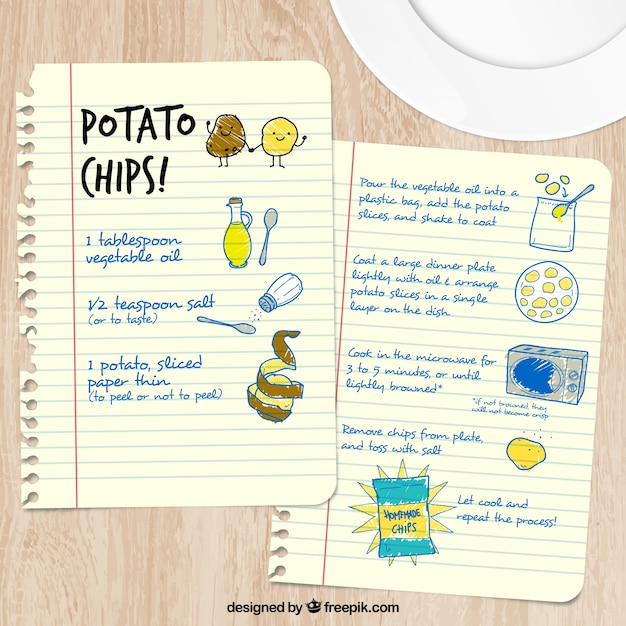 POTATO
CHIPS!
1 tablespoon
vegetable oil
1/2 teaspoon salt
(or to taste)
1 potato, sliced
paper thin
(to peel or not to peel)
Pour the vegetable oil into a
plastic bag, add the potato
slices, and shake to coat
Coat a large dinner plate
lightly with oil & arrange
potato slices in a single
layer on the dish.
Cook in the microwave for
3 to 5 minutes, or until
lightly browned*
*if not browned, they
will not become crisp
Remove chips from plate,
and toss with salt
HOMEMADE
CHIPS
Let cool and
repeat the process!
designed by freepik.com